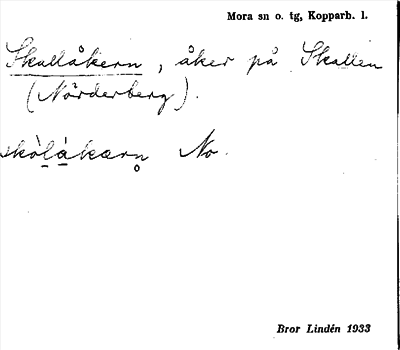 Mora sn o. tg, Kopparb. l.
Skallåkern, åker på Skallen
(Nörderberg).
skòlákærn No.
Bror Lindén 1933